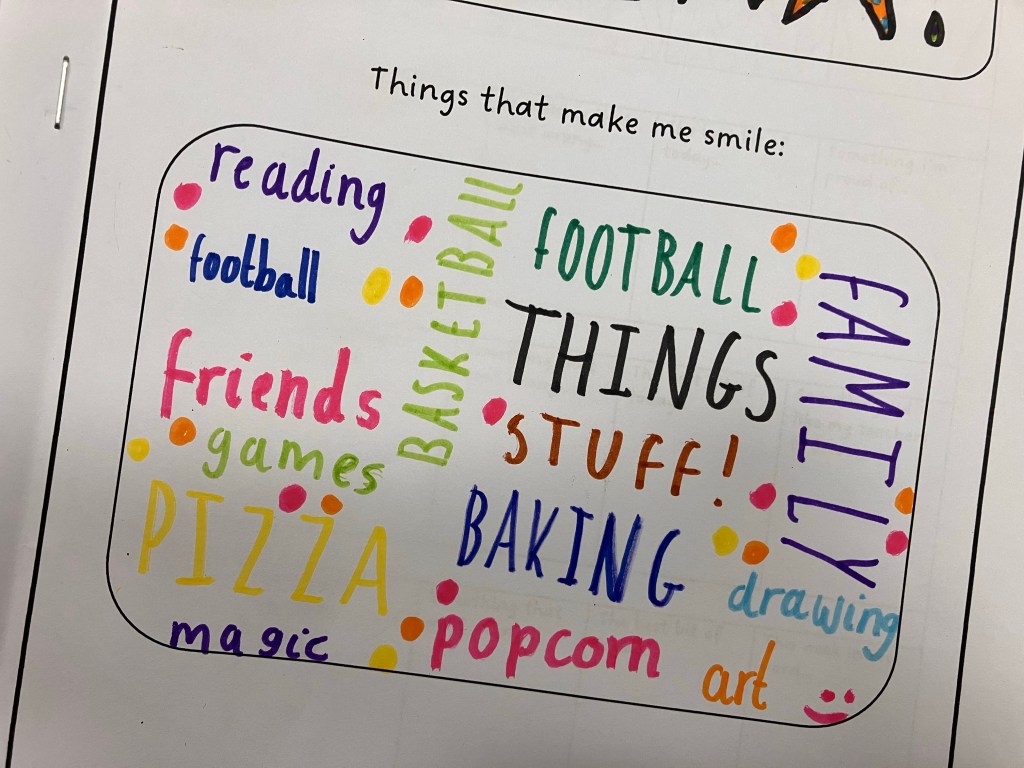 Things that make me smile:
reading
football
BASKETBALL
FOOTBALL
THINGS
STUFF!
FAMILY
friends
games
PIZZA
BAKING
drawing
magic
popcorn
art